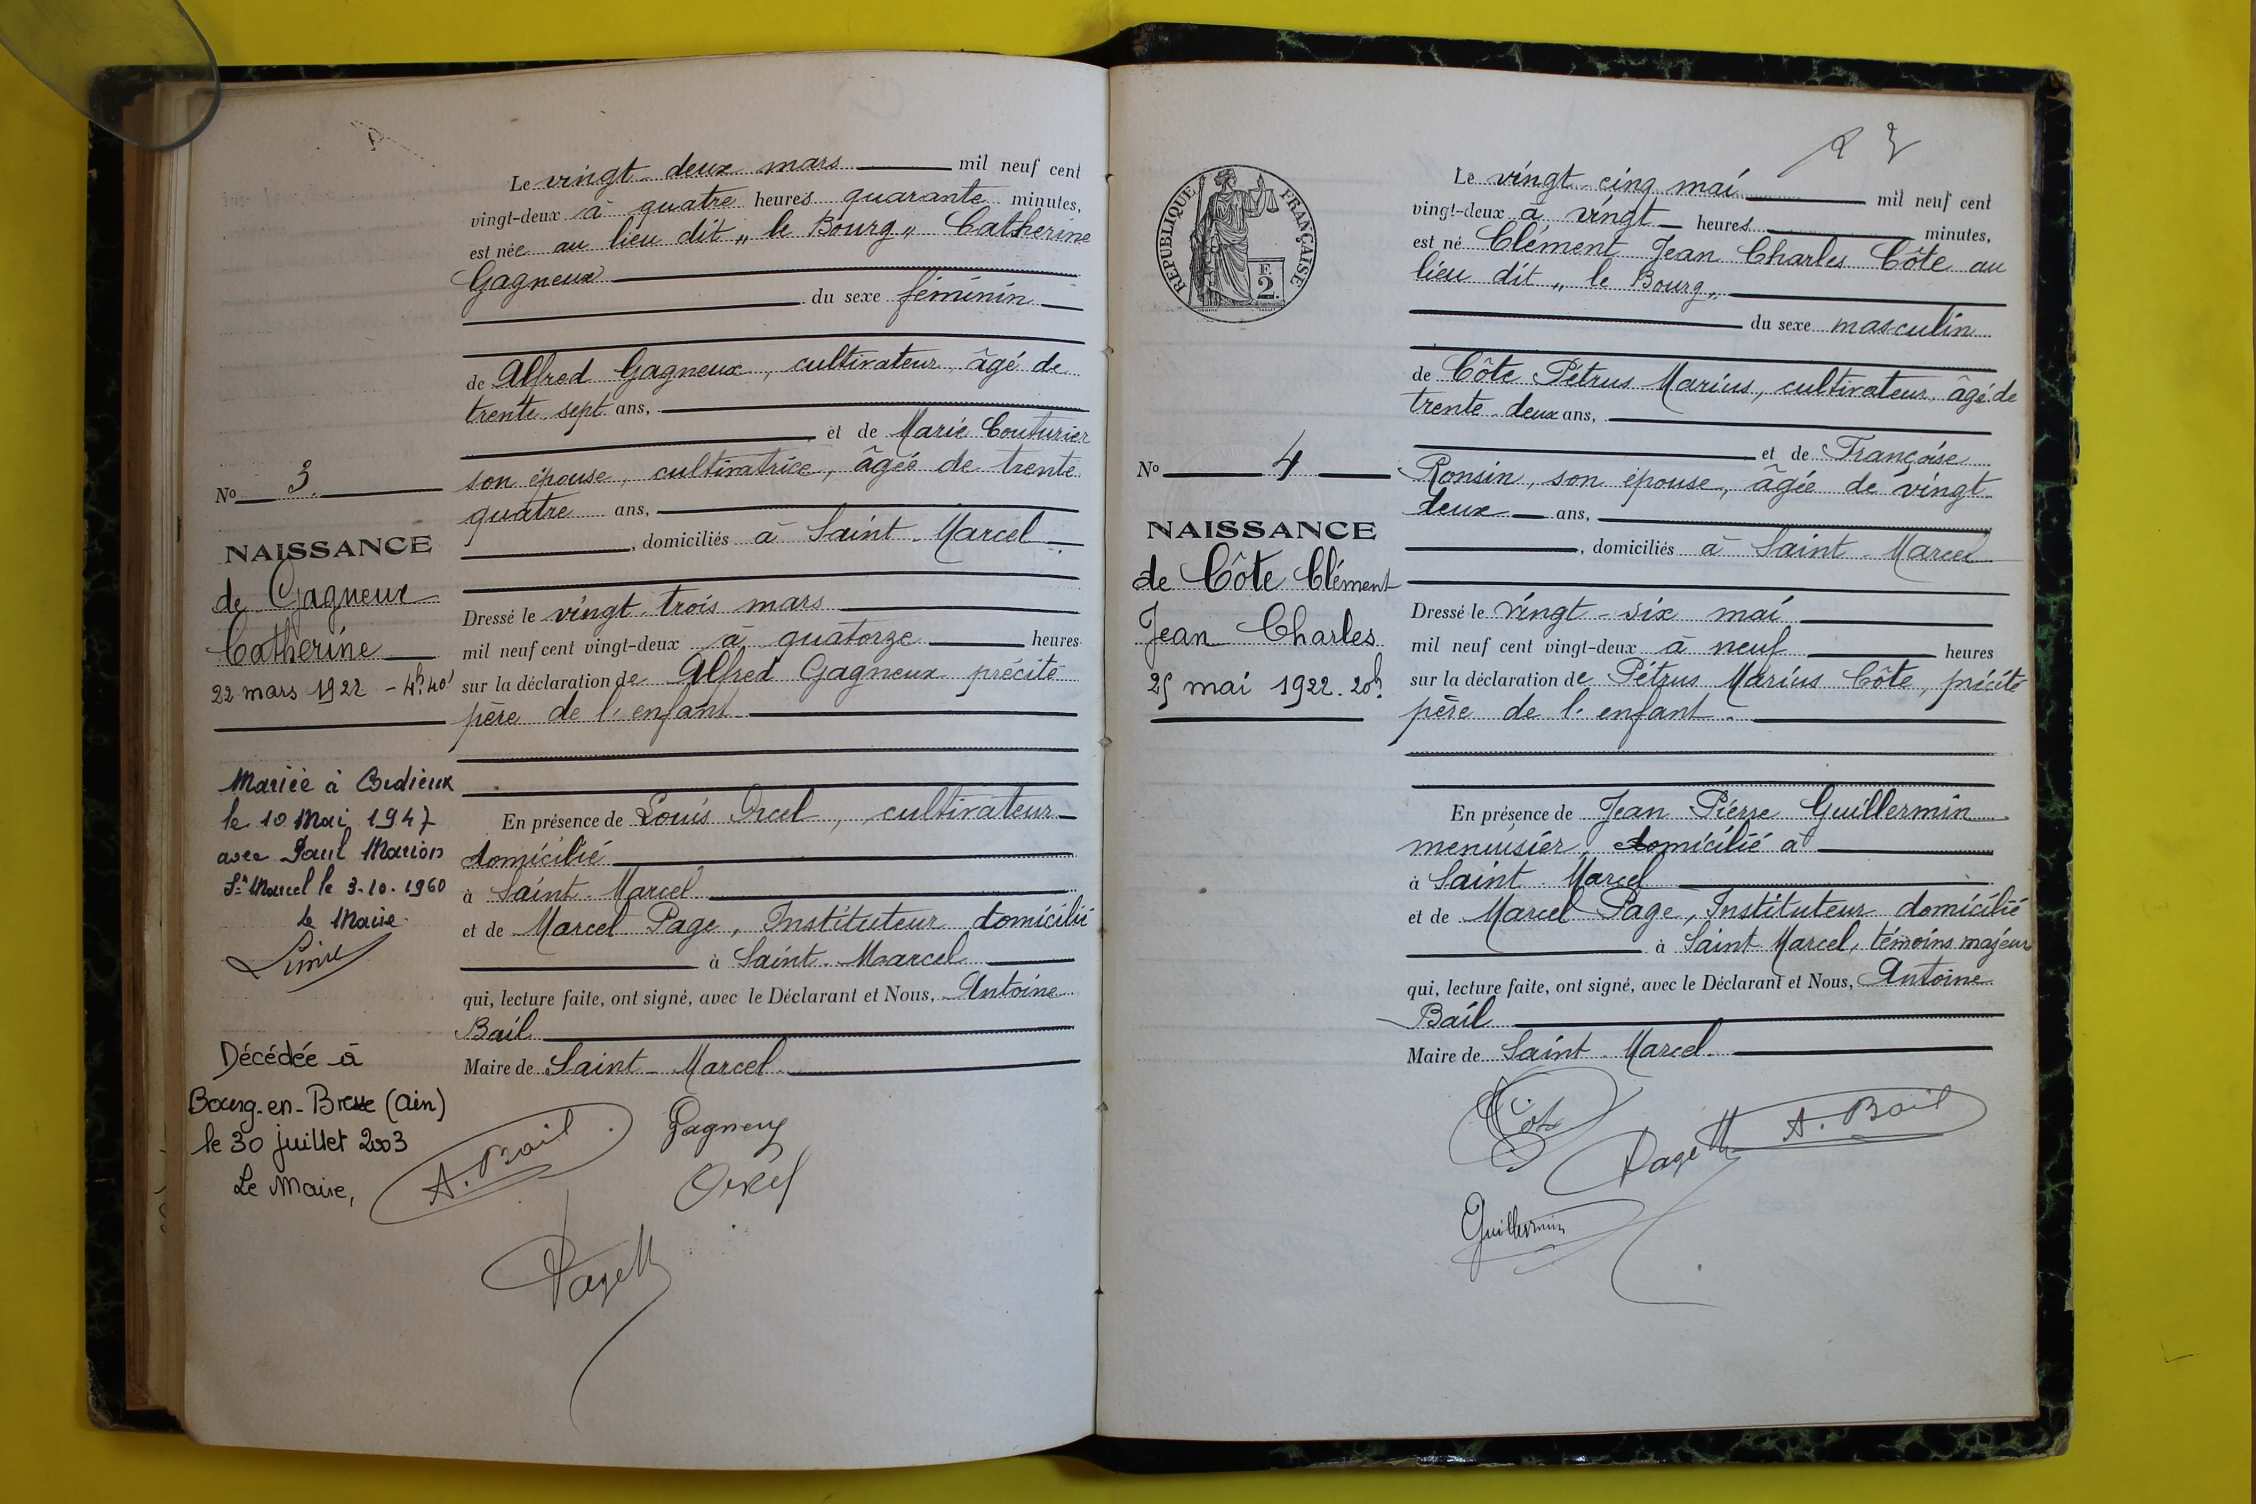 Le vingt-deux mars mil neuf cent
vingt-deux à quatre heures quarante minutes,
est née au lieu dit „ le Bourg „ Catherine
Gagneux
du sexe féminin
de Alfred Gagneux, cultivateur, âgé de
trente sept ans,
et de Marie Couturier
son épouse, cultivatrice, âgée de trente
quatre ans,
, domiciliés à Saint-Marcel
Dressé le vingt trois mars
mil neuf cent vingt-deux à quatorze heures
sur la déclaration de Alfred Gagneux précité
père de l'enfant
En présence de Louis Orcel, cultivateur
domicilié
à Saint-Marcel
et de Marcel Page, Instituteur domicilié
à Saint-Marcel
qui, lecture faite, ont signé, avec le Déclarant et Nous, Antoine
Bail
Maire de Saint-Marcel.
No 3.
NAISSANCE
de Gagneux
Catherine
22 mars 1922 - 4h 40'
Mariée à
le 10 Mai 1947
avec Paul Marion
St Marcel le 3-10-1960
le Maire
Décédée à
Bourg-en-Bresse (Ain)
le 30 juillet 2003
Le Maire,
A. Bail
Gagneux
Orcel
Page M
2 3
REPUBLIQUE FRANÇAISE
F.
2.
Le vingt-cinq mai mil neuf cent
vingt-deux à vingt heures minutes,
est né Clément Jean Charles Côte au
lieu dit „ le Bourg „
du sexe masculin
de Côte Pétrus Marius, cultivateur, âgé de
trente-deux ans,
et de Françoise
Ronsin, son épouse, âgée de vingt
deux ans,
, domiciliés à Saint-Marcel
Dressé le vingt-six mai
mil neuf cent vingt-deux à neuf heures
sur la déclaration de Pétrus Marius Côte, précité
père de l'enfant.
En présence de Jean Pierre Guillermin
menuisier, domicilié à
à Saint-Marcel
et de Marcel Page, Instituteur domicilié
à Saint Marcel, témoins majeurs
qui, lecture faite, ont signé, avec le Déclarant et Nous, Antoine
Bail
Maire de Saint-Marcel.
No 4
NAISSANCE
de Côte Clément
Jean Charles
25 mai 1922. 20h.
Côte
Page M
A. Bail
Guillermin